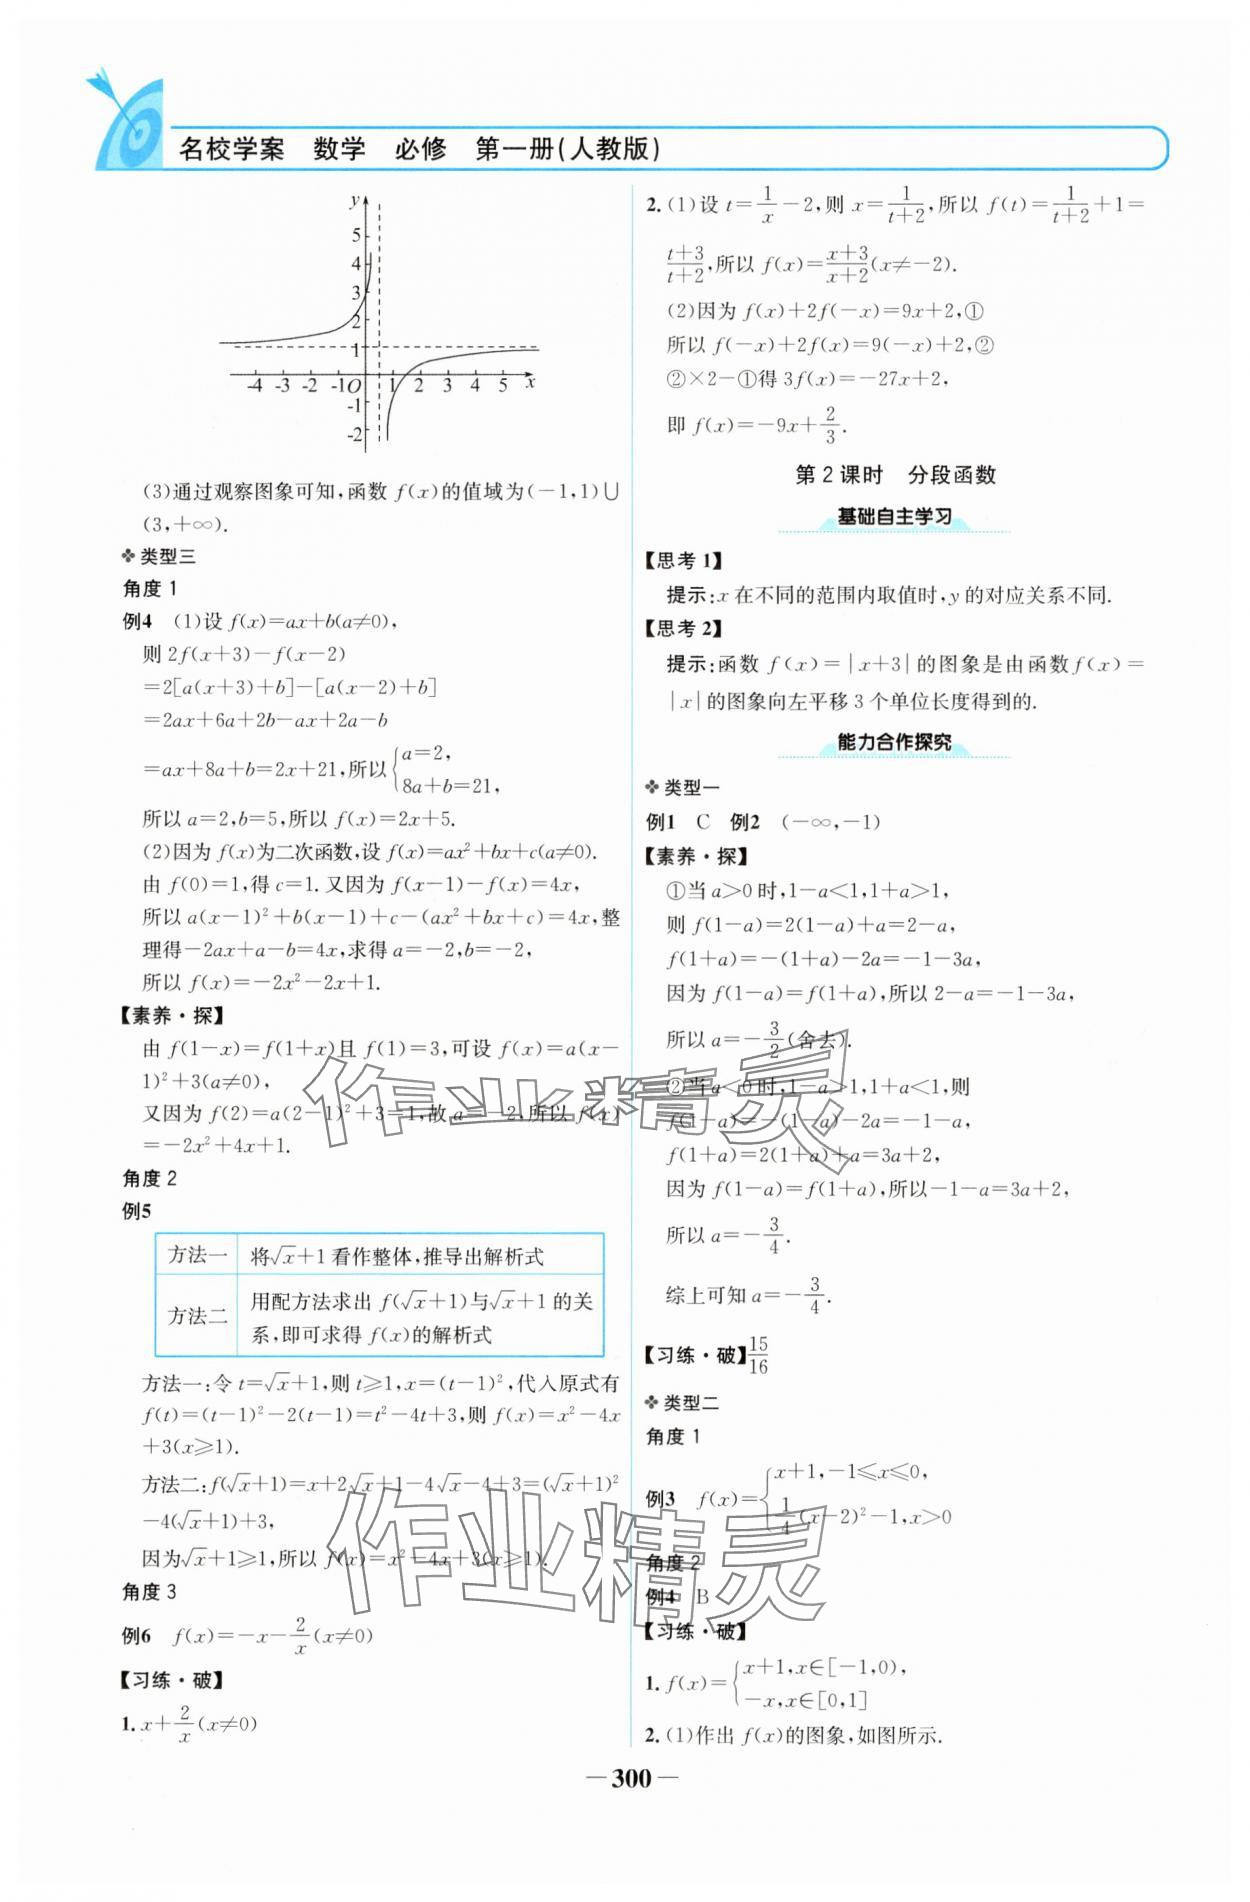 名校学案 数学 必修 第一册(人教版)
y
5
4
3
2
1
-4 -3 -2 -1 O 1 2 3 4 5 x
-1
-2
(3)通过观察图象可知,函数 f(x)的值域为(-1,1)∪
(3,+∞).
❖ 类型三
角度 1
例4 (1)设 f(x)=ax+b(a≠0),
则 2f(x+3)-f(x-2)
=2[a(x+3)+b]-[a(x-2)+b]
=2ax+6a+2b-ax+2a-b
=ax+8a+b=2x+21,所以{a=2,
8a+b=21,
所以 a=2,b=5,所以 f(x)=2x+5.
(2)因为 f(x)为二次函数,设 f(x)=ax²+bx+c(a≠0).
由 f(0)=1,得 c=1. 又因为 f(x-1)-f(x)=4x,
所以 a(x-1)²+b(x-1)+c-(ax²+bx+c)=4x,整
理得-2ax+a-b=4x,求得 a=-2,b=-2,
所以 f(x)=-2x²-2x+1.
【素养·探】
由 f(1-x)=f(1+x)且 f(1)=3,可设 f(x)=a(x-
1)²+3(a≠0),
又因为 f(2)=a(2-1)²+3=1,故 a=-2,所以 f(x)
=-2x²+4x+1.
角度 2
例5
方法一 将√x+1 看作整体,推导出解析式
方法二 用配方法求出 f(√x+1)与√x+1 的关
系,即可求得 f(x)的解析式
方法一:令 t=√x+1,则 t≥1,x=(t-1)²,代入原式有
f(t)=(t-1)²-2(t-1)=t²-4t+3,则 f(x)=x²-4x
+3(x≥1).
方法二:f(√x+1)=x+2√x+1-4√x-4+3=(√x+1)²
-4(√x+1)+3,
因为√x+1≥1,所以 f(x)=x²-4x+3(x≥1).
角度 3
例6 f(x)=-x-2/x(x≠0)
【习练·破】
1. x+2/x(x≠0)
2. (1)设 t=1/x-2,则 x=1/(t+2),所以 f(t)=1/(t+2)+1=
(t+3)/(t+2),所以 f(x)=(x+3)/(x+2)(x≠-2).
(2)因为 f(x)+2f(-x)=9x+2,①
所以 f(-x)+2f(x)=9(-x)+2,②
②×2-①得 3f(x)=-27x+2,
即 f(x)=-9x+2/3.
第 2 课时 分段函数
基础自主学习
【思考 1】
提示:x 在不同的范围内取值时,y 的对应关系不同.
【思考 2】
提示:函数 f(x)=|x+3|的图象是由函数 f(x)=
|x|的图象向左平移 3 个单位长度得到的.
能力合作探究
❖ 类型一
例1 C 例2 (-∞,-1)
【素养·探】
①当 a>0 时,1-a<1,1+a>1,
则 f(1-a)=2(1-a)+a=2-a,
f(1+a)=-(1+a)-2a=-1-3a,
因为 f(1-a)=f(1+a),所以 2-a=-1-3a,
所以 a=-3/2(舍去).
②当 a<0 时,1-a>1,1+a<1,则
f(1-a)=-(1-a)-2a=-1-a,
f(1+a)=2(1+a)+a=3a+2,
因为 f(1-a)=f(1+a),所以-1-a=3a+2,
所以 a=-3/4.
综上可知 a=-3/4.
【习练·破】15/16
❖ 类型二
角度 1
例3 f(x)={x+1,-1≤x≤0,
1/4(x-2)²-1,x>0
角度 2
例4 B
【习练·破】
1. f(x)={x+1,x∈[-1,0),
-x,x∈[0,1]
2. (1)作出 f(x)的图象,如图所示.
— 300 —
作业精灵
作业精灵